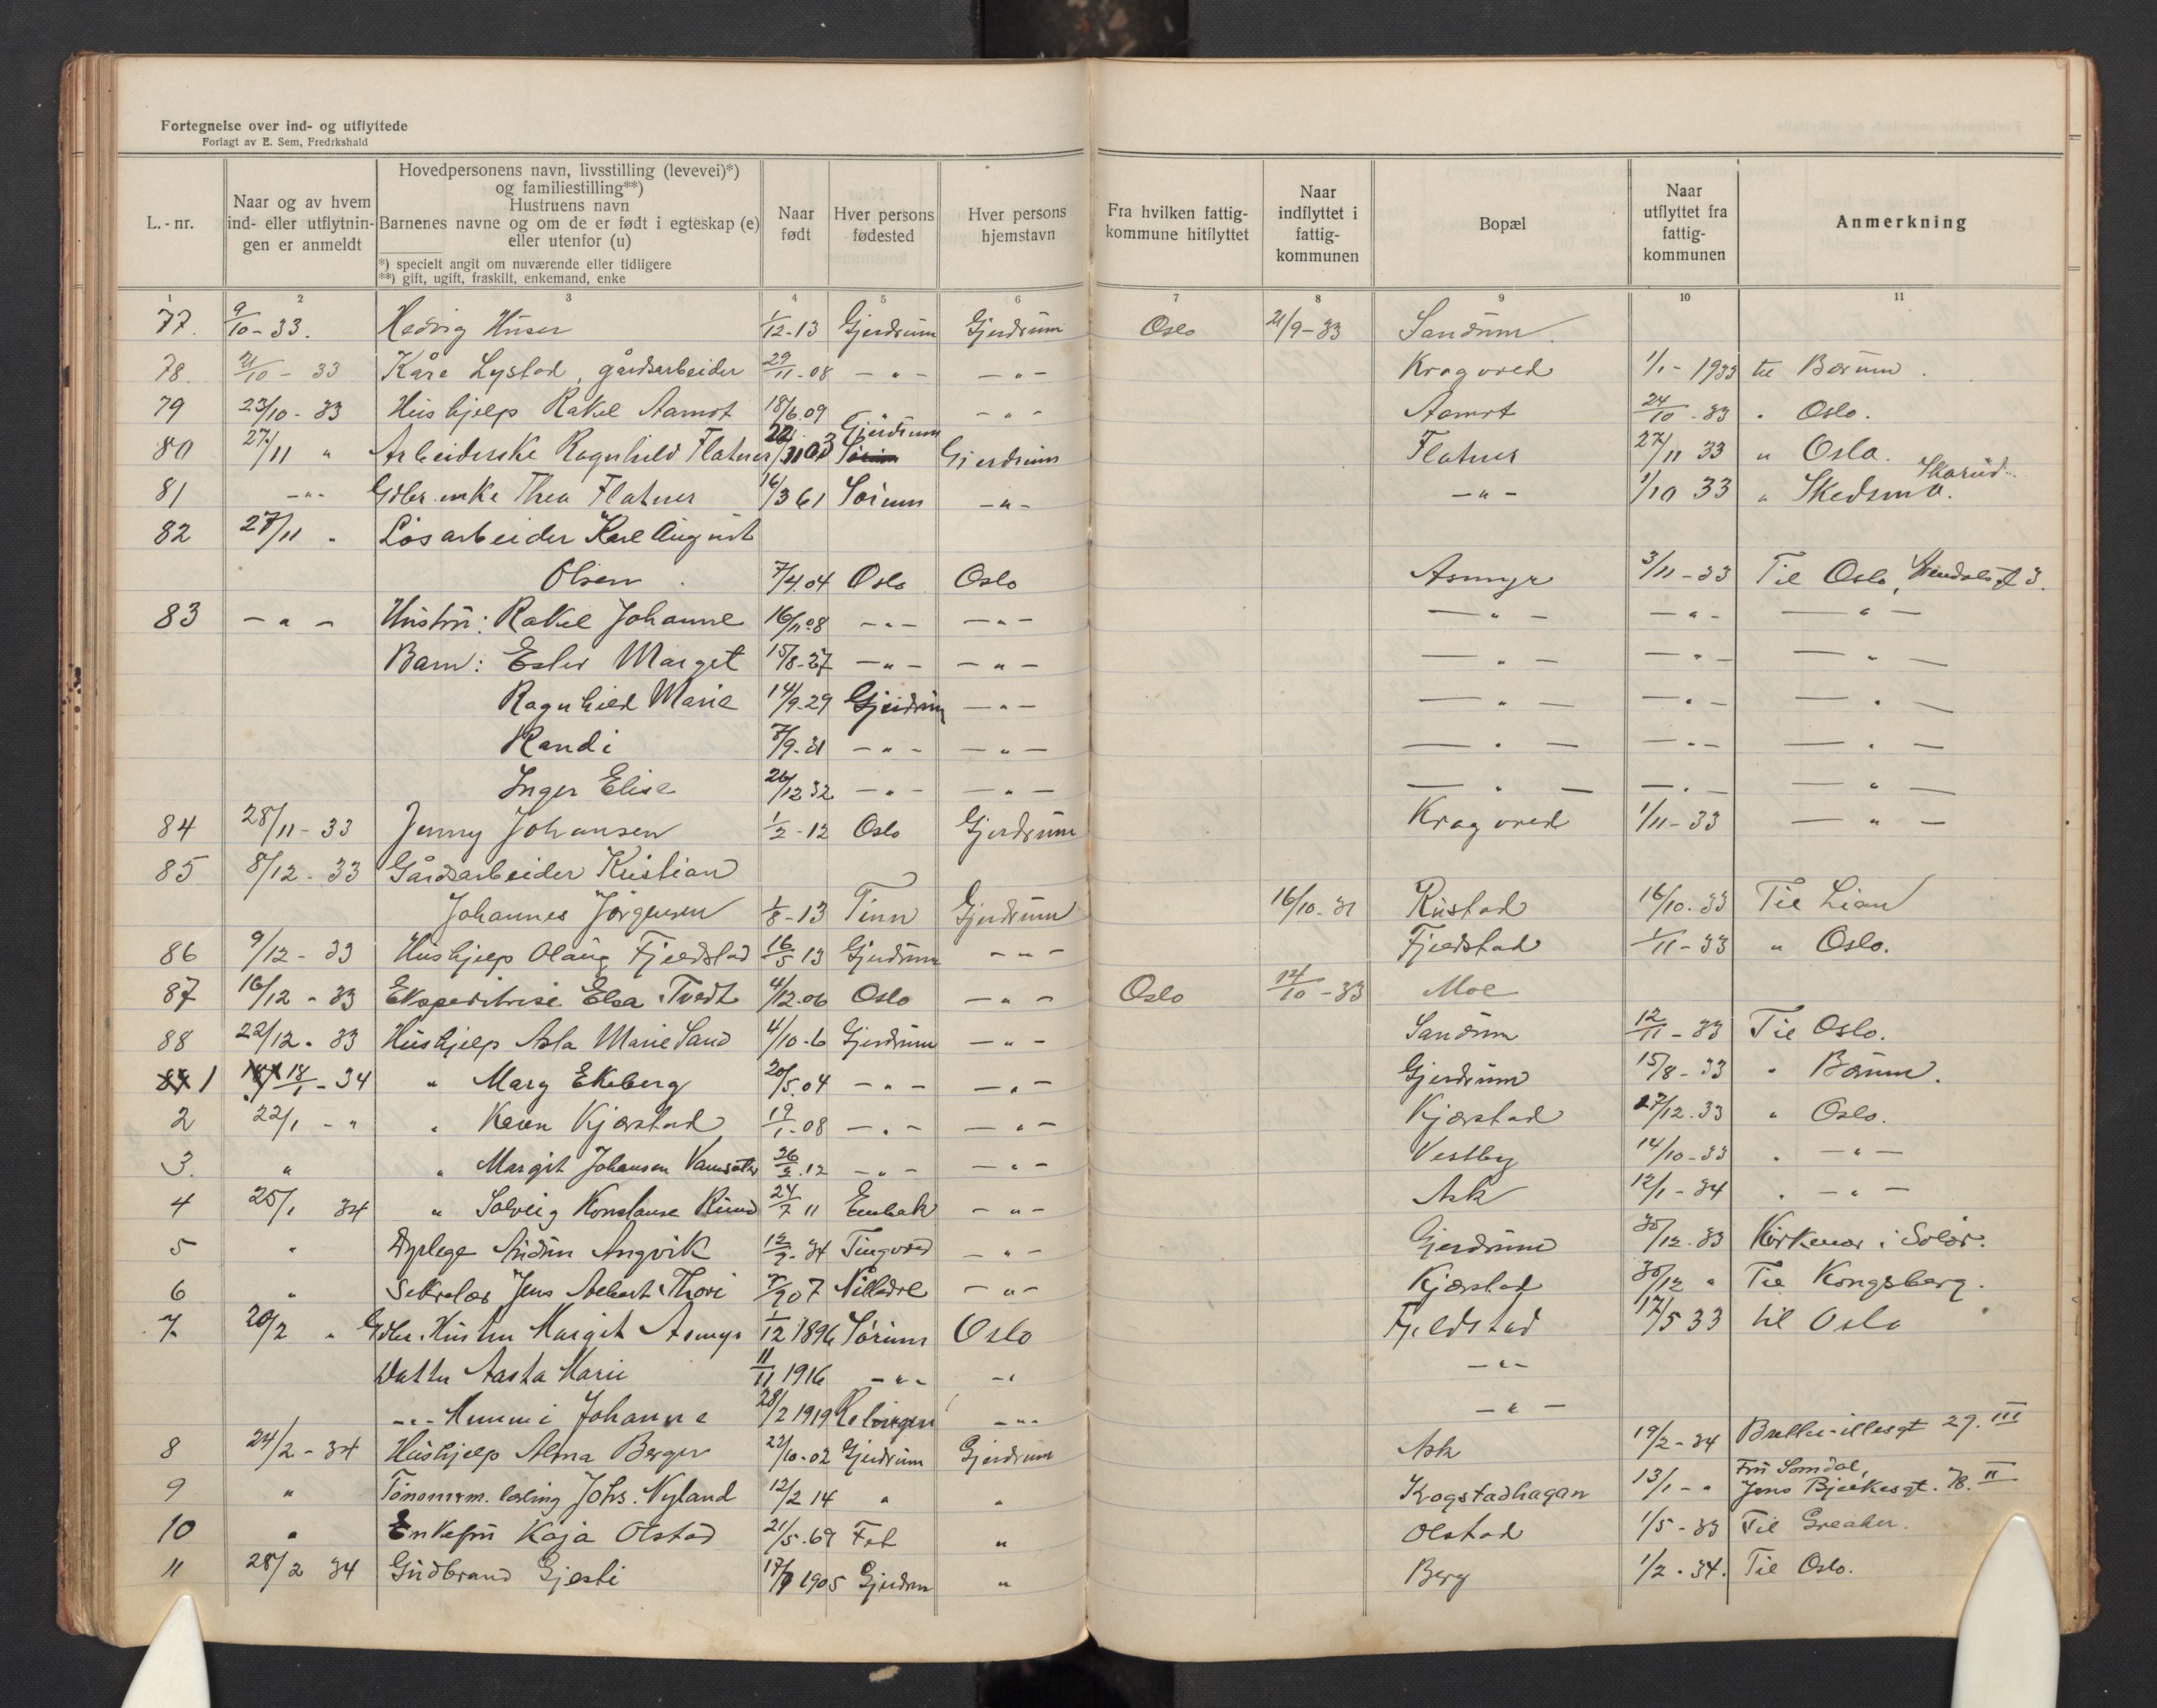 Fortegnelse over ind- og utflyttede
Forlagt av E. Sem, Fredrkshald
L.-nr.
Naar og av hvem ind- eller utflytnin- gen er anmeldt
Hovedpersonens navn, livsstilling (levevei)*)
og familiestilling**)
Hustruens navn
Barnenes navne og om de er født i egteskap (e)
eller utenfor (u)
*) specielt angit om nuværende eller tidligere
**) gift, ugift, fraskilt, enkemand, enke
Naar født
Hver persons fødested
Hver persons hjemstavn
Fra hvilken fattig- kommune hitflyttet
Naar indflyttet i fattig- kommunen
Bopæl
Naar utflyttet fra fattig- kommunen
Anmerkning
1 2 3 4 5 6 7 8 9 10 11
77. 9/10-33. Hedvig Huser 1/12-13 Gjerdrum Gjerdrum Oslo 21/9-33 Sandum.
78. 21/10-33 Kåre Lystad, gårdsarbeider 29/11-08 -"- -"- Kragvred 1/1-1933 til Bærum.
79 23/10-33 Hushjelp Rakel Aamot 18/6.09 " -"- Aamot 24/10-33 " Oslo.
80 27/11 " Arbeiderske Ragnhild Flatner 22/11 03 Gjerdrum Gjerdrum Flatner 27/11 33 " Oslo.
81 -"- Gdbr.enke Thea Flatner 16/3 61 Sørum -"- -"- 1/10 33 " Skedsmo.
82 27/11 " Løsarbeider Karl August
Olsen. 7/4.04 Oslo Oslo Asmyr 3/11-33 Til Oslo,
83 -"- Hustru: Rakel Johanne 16/11 08 -"- -"- -"- -"- -"-
Barn: Ester Margit 15/8-27 -"- -"- -"- -"- -"-
Ragnhild Marie 14/9-29 Gjerdrum -"- -"- -"- -"-
Randi 7/9-31 -"- -"- -"- -"- -"-
Inger Elise 26/12 32 -"- -"- -"- -"- -"-
84 28/11-33 Jenny Johansen 1/2-12 Oslo Gjerdrum Kragvred 1/11-33 -"-
85 8/12-33 Gårdsarbeider Kristian
Johannes Jørgensen 1/8-13 Tinn Gjerdrum 16/10-31 Rustad 16/10-33 Til Lian
86 9/12-33 Hushjelp Olaug Fjeldstad 16/5 13 Gjerdrum -"- Fjeldstad 1/11-33 " Oslo.
87 16/12-33 Ekspeditrise Elsa Tvedt 4/12.06 Oslo -"- Oslo 14/10-33 Moe
88 22/12-33 Hushjelp Asta Marie Sand 4/10-6 Gjerdrum -"- Sandum 12/11-33 Til Oslo.
1 18/1-34 " Mary Ekeberg 20/5.04 -"- -"- Gjerdrum 15/8-33 " Bærum.
2 22/1-" " Karen Kjærstad 19/1-08 -"- -"- Kjærstad 27/12.33 " Oslo.
3. " " Margit Johansen 26/2.12 -"- -"- Vestby 14/10-33 " -"-
4 25/1 34 " Solveig Konstanse 24/7 11 -"- Ask 12/1-34 " -"-
5 " Dyrlege Audun Angvik 12/9-34 Tingvold -"- Gjerdrum 30/12.33 Kirkenær i Solør.
6 " Sekretær Jens Albert 7/9 07 Nittedal -"- Kjærstad 30/12 " Til Kongsberg.
7. 20/2 " Gdbr. Hustru Margit Asmyr 1/12 1896 Sørum Oslo Fjeldstad 17/5 33 til Oslo
Datter Aasta Marie 11/11 1916 -"- -"- -"-
-"- Mimmi Johanne 28/2 1919 -"- -"-
8 24/2-34 Hushjelp Alma Berger 22/10-02 Gjerdrum Gjerdrum Ask 19/2-34 29. III
9 " Johs. Nyland 12/2 14 " " Krogstadhagan 13/1-" Fru Somdal,
Jens Bjelkesgt. 78. II
10 " Enkefru Kaja Olstad 21/5.69 Fet " Olstad 1/5-33 Til Greaker.
11 28/2 34 Gudbrand Gjesti 1905 Gjerdrum " Berg 1/2-34. Til Oslo.